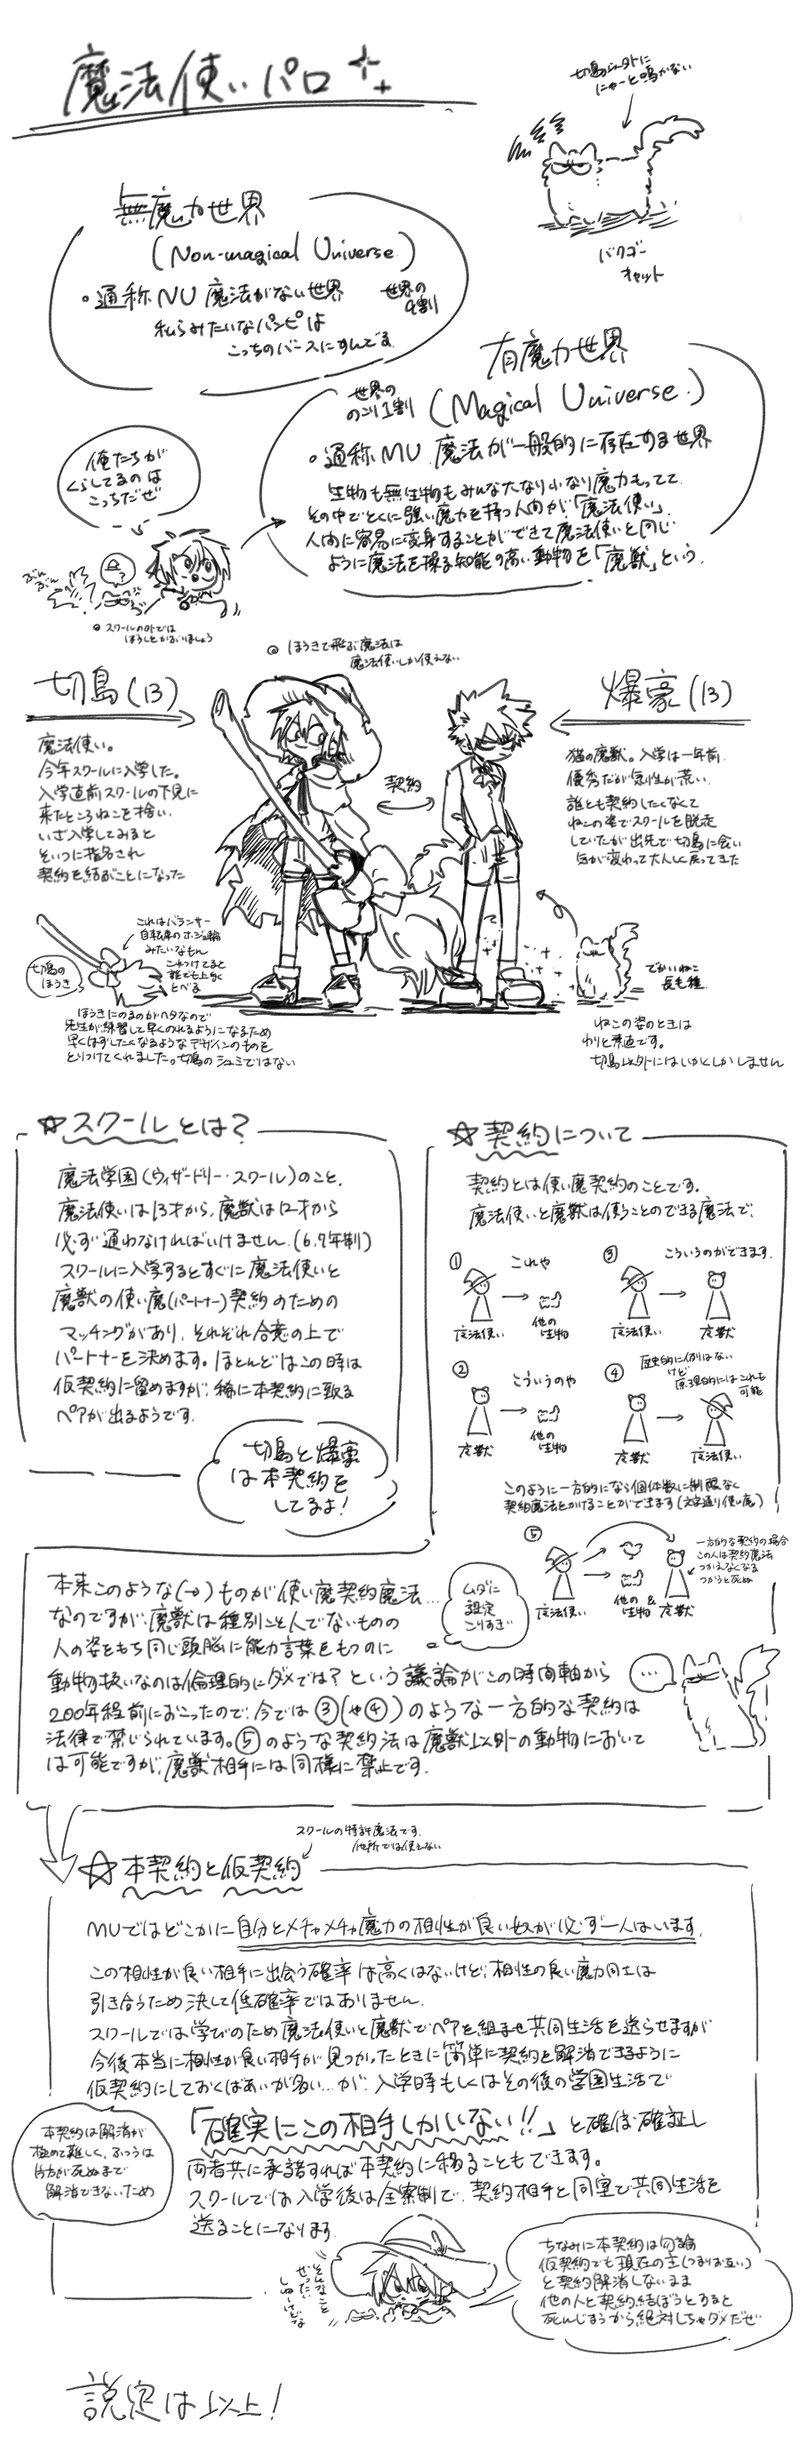 魔法使いパロ
切島以外に
にゃーと鳴かない
バクゴー
キャット
無魔力世界
(Non-magical Universe)
・通称NU 魔法がない世界
世界の
9割
私らみたいなパンピは
こっちのバースにすんでる
有魔力世界
世界の
のこり1割
(Magical Universe.)
・通称MU 魔法が一般的に存在する世界
生物も無生物もみんな大なり小なり魔力もってて
その中でとくに強い魔力を持つ人間が「魔法使い」
人間に容易に変身することができて魔法使いと同じ
ように魔法を操る知能の高い動物を「魔獣」という.
俺たちが
くらしてるのは
こっちだぜ
ぶんぶん
◎スクールの外では
ぼうしをかぶりましょう
◎ほうきで飛ぶ魔法は
魔法使いしか使えない
切島(13)
魔法使い。
今年スクールに入学した。
入学直前スクールの下見に
来たところねこを拾い.
いざ入学してみると
そいつに指名され
契約を結ぶことになった
契約
爆豪(13)
猫の魔獣。入学は一年前.
優秀だが気性が荒い.
誰とも契約したくなくて
ねこの姿でスクールを脱走
していたが出先で切島に会い
気が変わって大人しく戻ってきた
切島の
ほうき
これはバランサー
自転車のホジョ輪
みたいなもん
これつけてると
誰でも上手く
とべる
ほうきにのるのがヘタなので
先生が練習して早くのれるようになるため
早くはずしたくなるようなデザインのものを
とりつけてくれました。切島のシュミではない
でかいねこ
長毛種
ねこの姿のときは
わりと素直です。
切島以外にはいかくしかしません
☆スクールとは?
魔法学園(ウィザードリー・スクール)のこと.
魔法使いは13才から、魔獣は12才から
必ず通わなければいけません.(6.7年制)
スクールに入学するとすぐに魔法使いと
魔獣の使い魔(パートナー)契約のための
マッチングがあり、それぞれ合意の上で
パートナーを決めます。ほとんどはこの時は
仮契約に留めますが、稀に本契約に至る
ペアが出るようです.
切島と爆豪
は本契約を
してるよ!
☆契約について
契約とは使い魔契約のことです。
魔法使いと魔獣は使うことのできる魔法で、
①
これや
魔法使い
他の
生物
③
こういうのができます.
魔法使い
魔獣
②
こういうのや
魔獣
他の
生物
④
歴史的に例はない
けど
原理的にはこれも
可能
魔獣
魔法使い
このように一方的になら個体数に制限なく
契約魔法をかけることができます(文字通り使い魔)
⑤
魔法使い
他の
生物
&
魔獣
一方的な契約の場合
この人は契約魔法
つかえなくなる
つかうと死ぬ
本来このような(→)ものが使い魔契約魔法…
なのですが、魔獣は種別こそ人でないものの
人の姿をもち同じ頭脳に能力言葉をもつのに
動物扱いなのは倫理的にダメでは?という議論がこの時間軸から
200年程前におこったので、今では③(や④)のような一方的な契約は
法律で禁じられています。⑤のような契約法は魔獣以外の動物において
は可能ですが、魔獣相手には同様に禁止です.
ムダに
設定
こりすぎ
…
スクールの特許魔法です.
他所では使えない
☆本契約と仮契約
MUではどこかに自分とメチャメチャ魔力の相性が良い奴が必ず一人はいます.
この相性が良い相手に出会う確率は高くはないけど、相性の良い魔力同士は
引き合うため決して低確率ではありません.
スクールでは学びのため魔法使いと魔獣でペアを組ませ共同生活を送らせますが
今後本当に相性が良い相手が見つかったときに簡単に契約を解消できるように
仮契約にしておくばあいが多い…が、入学時もしくはその後の学園生活で
「確実にこの相手しかいない!!」と確信・確証し
両者共に承諾すれば本契約に移ることもできます。
スクールでは入学後は全寮制で、契約相手と同室で共同生活を
送ることになります.
本契約は解消が
極めて難しく、ふつうは
片方が死ぬまで
解消できないため
そんなこと
ぜったい
しねーけどな
ちなみに本契約は勿論
仮契約でも現在の主(つまりお互い)
と契約解消しないまま
他の人と契約結ぼうとすると
死んじまうから絶対しちゃダメだぜ
説定は以上!